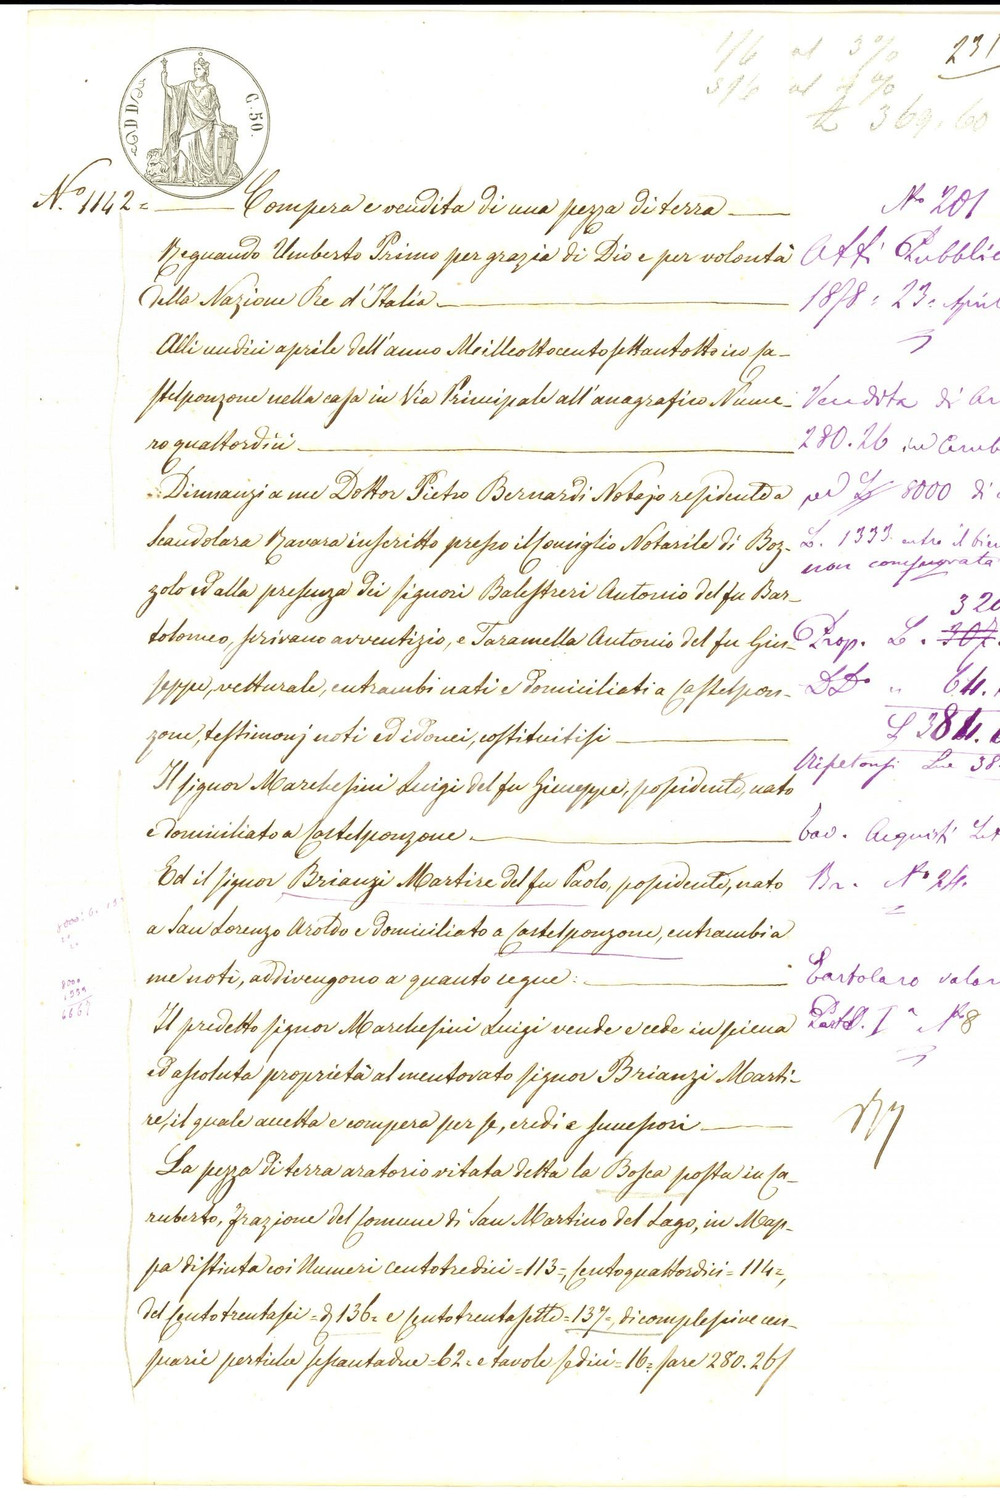 1/6 al 3%
5/6 al 4%
£ 369.60
231
C. 50.
N.º 1142= Compera e vendita di una pezza di terra
Regnando Umberto Primo per grazia di Dio e per volontà
della Nazione Re d'Italia
Alli undici aprile dell'anno Milleottocentosettantotto in Ca-
stelponzone nella casa in Via Principale all'anagrafico Nume-
ro quattordici
Dinnanzi a me Dottor Pietro Bernardi Notajo residente a
Scandolara Ravara inscritto presso il Consiglio Notarile di Boz-
zolo ed alla presenza dei signori Balestreri Antonio del fu Bar-
tolomeo, scrivano avventizio, e Taramella Antonio del fu Giu-
seppe, vetturale, entrambi nati e domiciliati a Castelpon-
zone, testimonj noti ed idonei, costituitisi
Il signor Marchesini Luigi del fu Giuseppe, possidente, nato
e domiciliato a Castelponzone
Ed il signor Brianzi Martire del fu Paolo, possidente, nato
a San Lorenzo Aroldo e domiciliato a Castelponzone, entrambi a
me noti, addivengono a quanto segue:
Il predetto signor Marchesini Luigi vende e cede in piena
ed assoluta proprietà al mentovato signor Brianzi Marti-
re, il quale accetta e compera per se, eredi e successori
La pezza di terra aratorio vitata detta la Bosca posta in Ca-
ruberto, frazione del Comune di San Martino del Lago, in Map-
pa distinta coi Numeri centotredici=113=, Centoquattordici=114=,
del Centotrentasei=d 136= e Centotrentasette=137=, di complessive cen-
suarie pertiche sessantadue=62= e tavole sedici=16= pare 280.26/
Nº 201
Atti Pubblic
1878: 23= April
Vendita di Ar
280.26 in
per £ 8000 di
L. 1333 entro il bien
non consumata
320
Prop. L. 307.
DDº " 64.
£ 384.
Ripetonsi Le 38
Tav. Acquisti Lett
Br. Nº 24.
Cartolaro valor
Partª. Iª Nº 8
8000
1333
6667